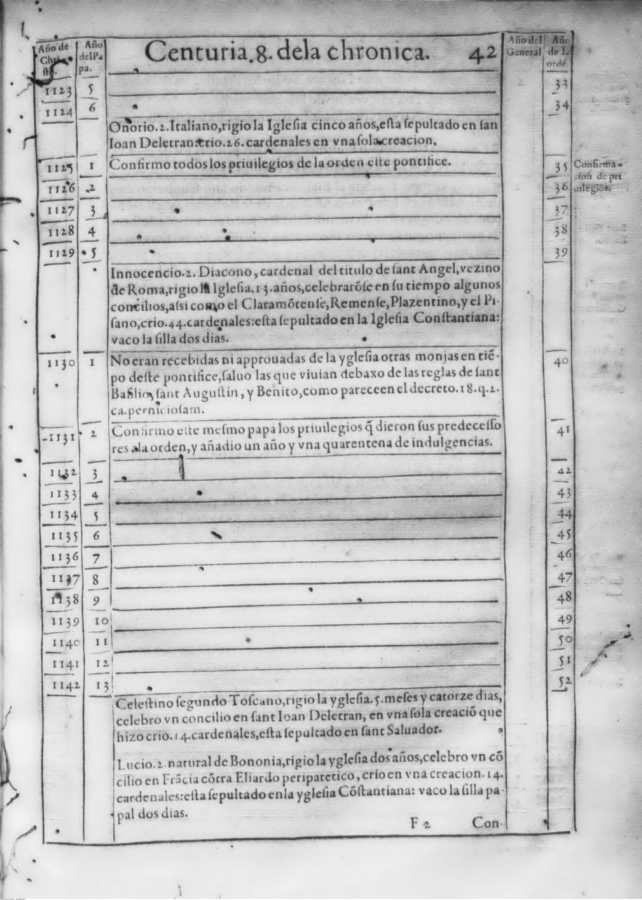 Centuria.8. dela chronica. 42
Año de Chri sto. Año del Pa pa. Año del General Año de la ordē
1123 5 33
1124 6 34
Onorio.2. Italiano, rigio la Iglesia cinco años, esta sepultado en san
Ioan Deletran: crio.26. cardenales en vna sola creacion.
1125 1 Confirmo todos los priuilegios de la orden este pontifice. 35 Confirma-
1126 2 36 cion de pri
uilegios.
1127 3 37
1128 4 38
1129 5 39
Innocencio.2. Diacono, cardenal del titulo de sant Angel, vezino
de Roma, rigio la Iglesia.13. años, celebrarōse en su tiempo algunos
concilios, assi como el Claramōtense, Remense, Plazentino, y el Pi-
sano, crio.44. cardenales: esta sepultado en la Iglesia Constantiana:
vaco la silla dos dias.
1130 1 No eran recebidas ni approuadas de la yglesia otras monjas en tiē- 40
po deste pontifice, saluo las que viuian debaxo de las reglas de sant
Basilio, sant Augustin, y Benito, como parece en el decreto.18.q.2.
ca. perniciosam.
1131 2 Confirmo este mesmo papa los priuilegios q̄ dieron sus predecesso 41
res ala orden, y añadio un año y vna quarentena de indulgencias.
1132 3 42
1133 4 43
1134 5 44
1135 6 45
1136 7 46
1137 8 47
1138 9 48
1139 10 49
1140 11 50
1141 12 51
1142 13 52
Celestino segundo Toscano, rigio la yglesia.5. meses y catorze dias,
celebro vn concilio en sant Ioan Deletran, en vna sola creaciō que
hizo crio.14. cardenales, esta sepultado en sant Saluador.
Lucio.2. natural de Bononia, rigio la yglesia dos años, celebro vn cō
cilio en Frācia cōtra Eliardo peripatetico, crio en vna creacion.14.
cardenales: esta sepultado en la yglesia Cōstantiana: vaco la silla pa-
pal dos dias.
F 2 Con-